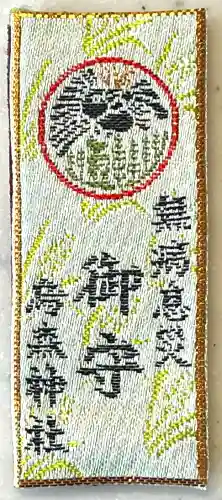 無病息災
御守
烏森神社